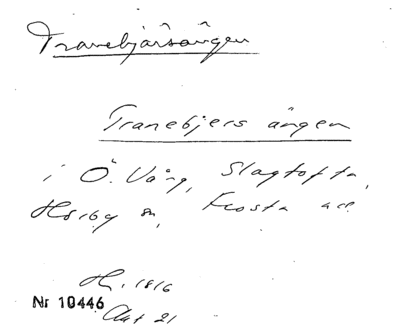 Tranebjärsängen
Tranebjers ängen
i Ö. Vång, Slagtofta,
Hörby sn, Frosta
H. 1816
Nr 10446
Akt 21